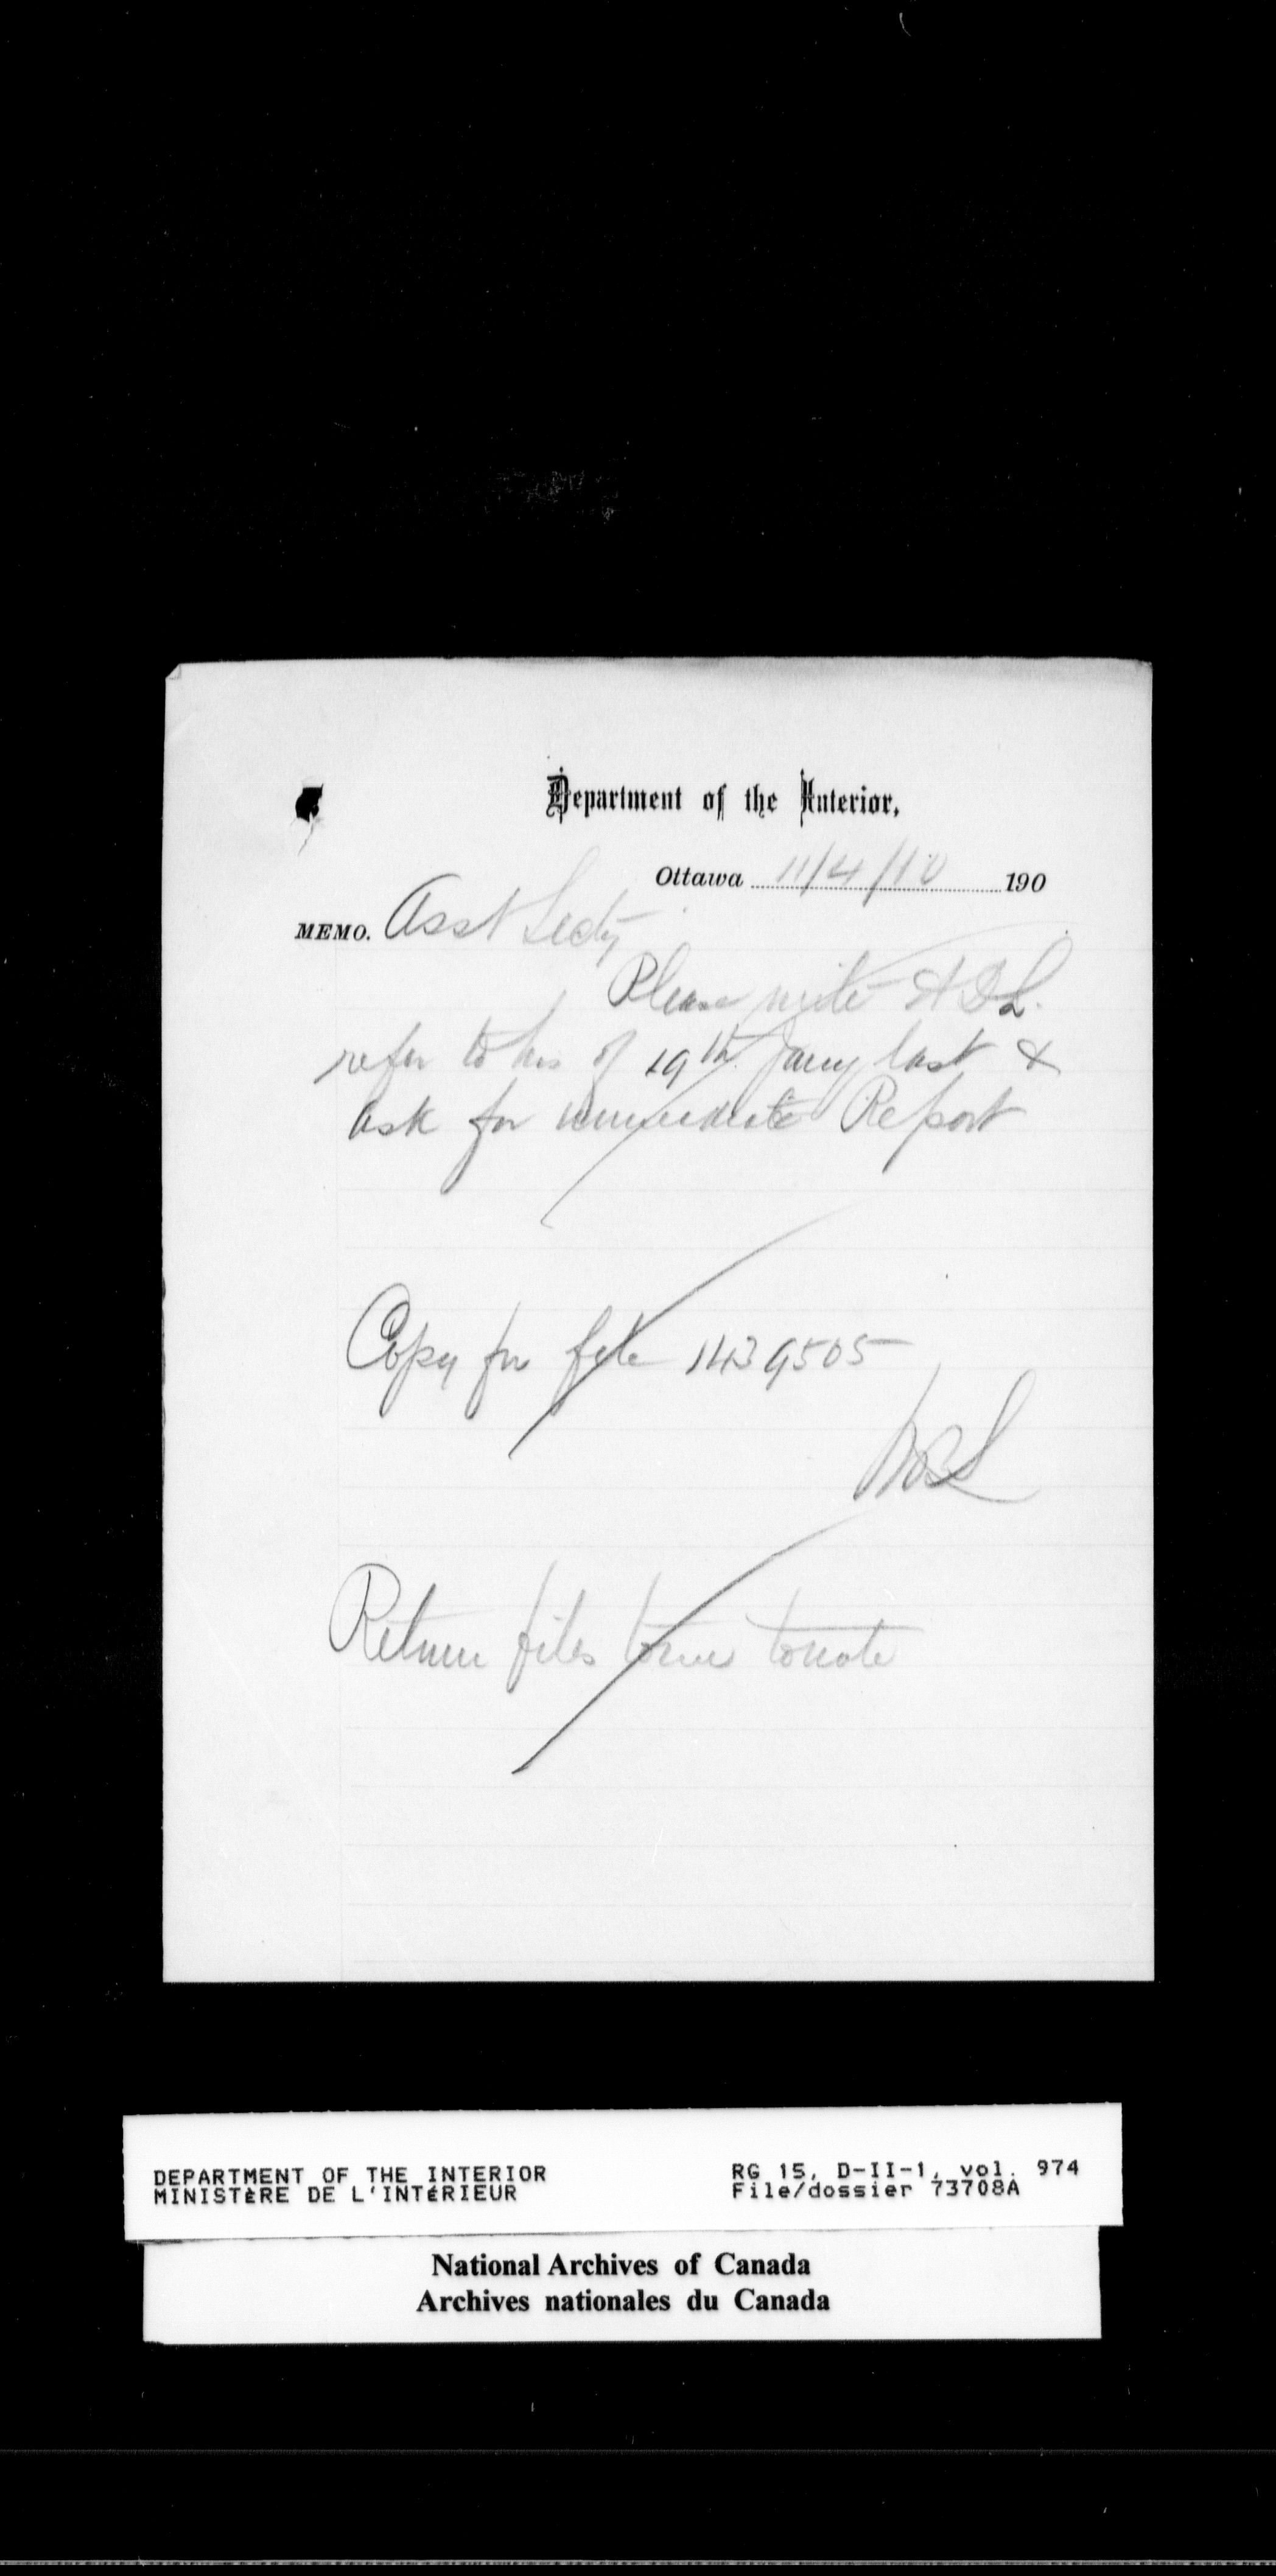 Department of the Interior.
Ottawa 11/4/10 190
MEMO. Asst Secty
Please write
refer to his of 19th Jany last &
ask for immediate Report
Copy for file 1439505
Return files to me to note
DEPARTMENT OF THE INTERIOR
MINISTÈRE DE L'INTÉRIEUR
RG 15, D-II-1, vol. 974
File/dossier 73708A
National Archives of Canada
Archives nationales du Canada